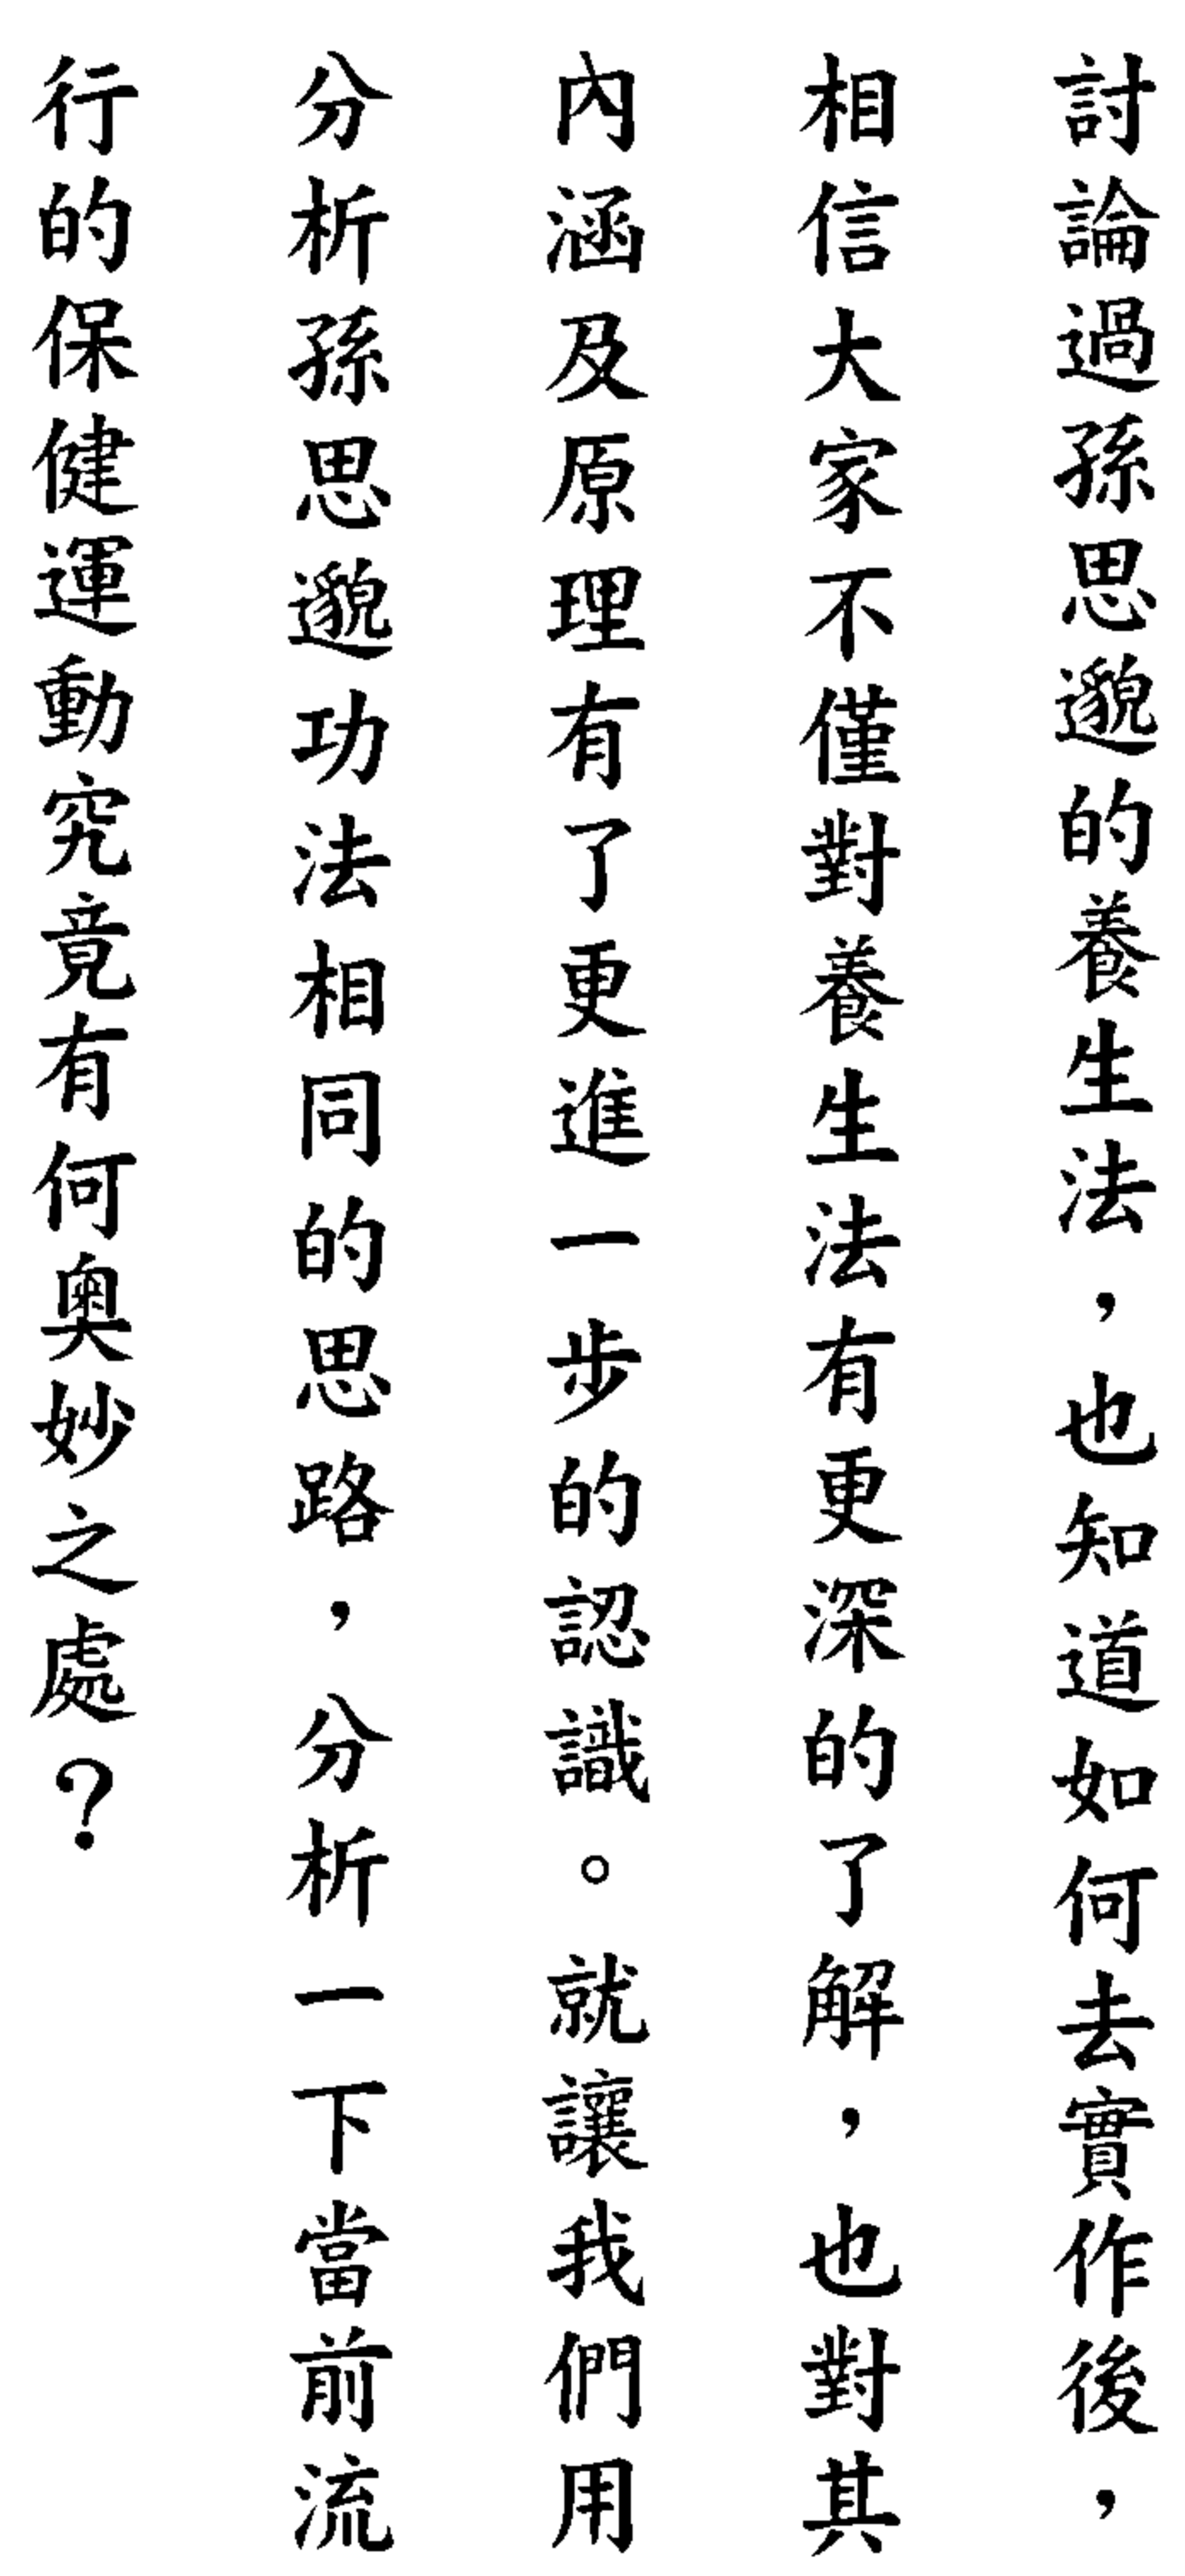 討論過孫思邈的養生法，也知道如何去實作後，
相信大家不僅對養生法有更深的了解，也對其
內涵及原理有了更進一步的認識。就讓我們用
分析孫思邈功法相同的思路，分析一下當前流
行的保健運動究竟有何奧妙之處？